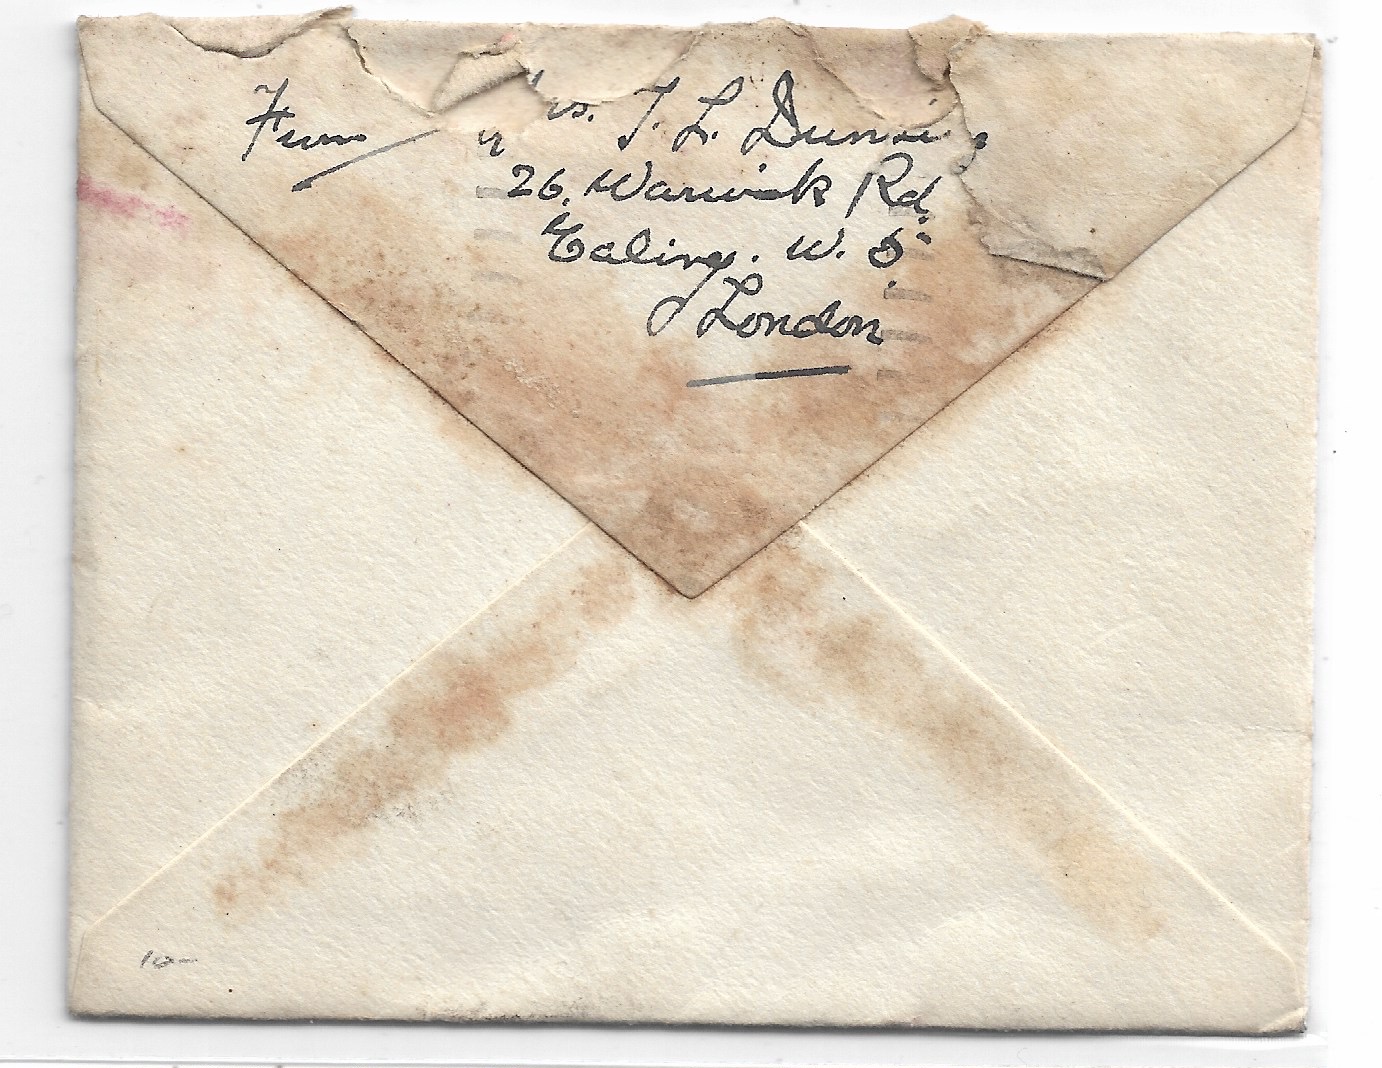 From
T. L.
26, Warwick Rd.
Ealing. W. 5
London
10-